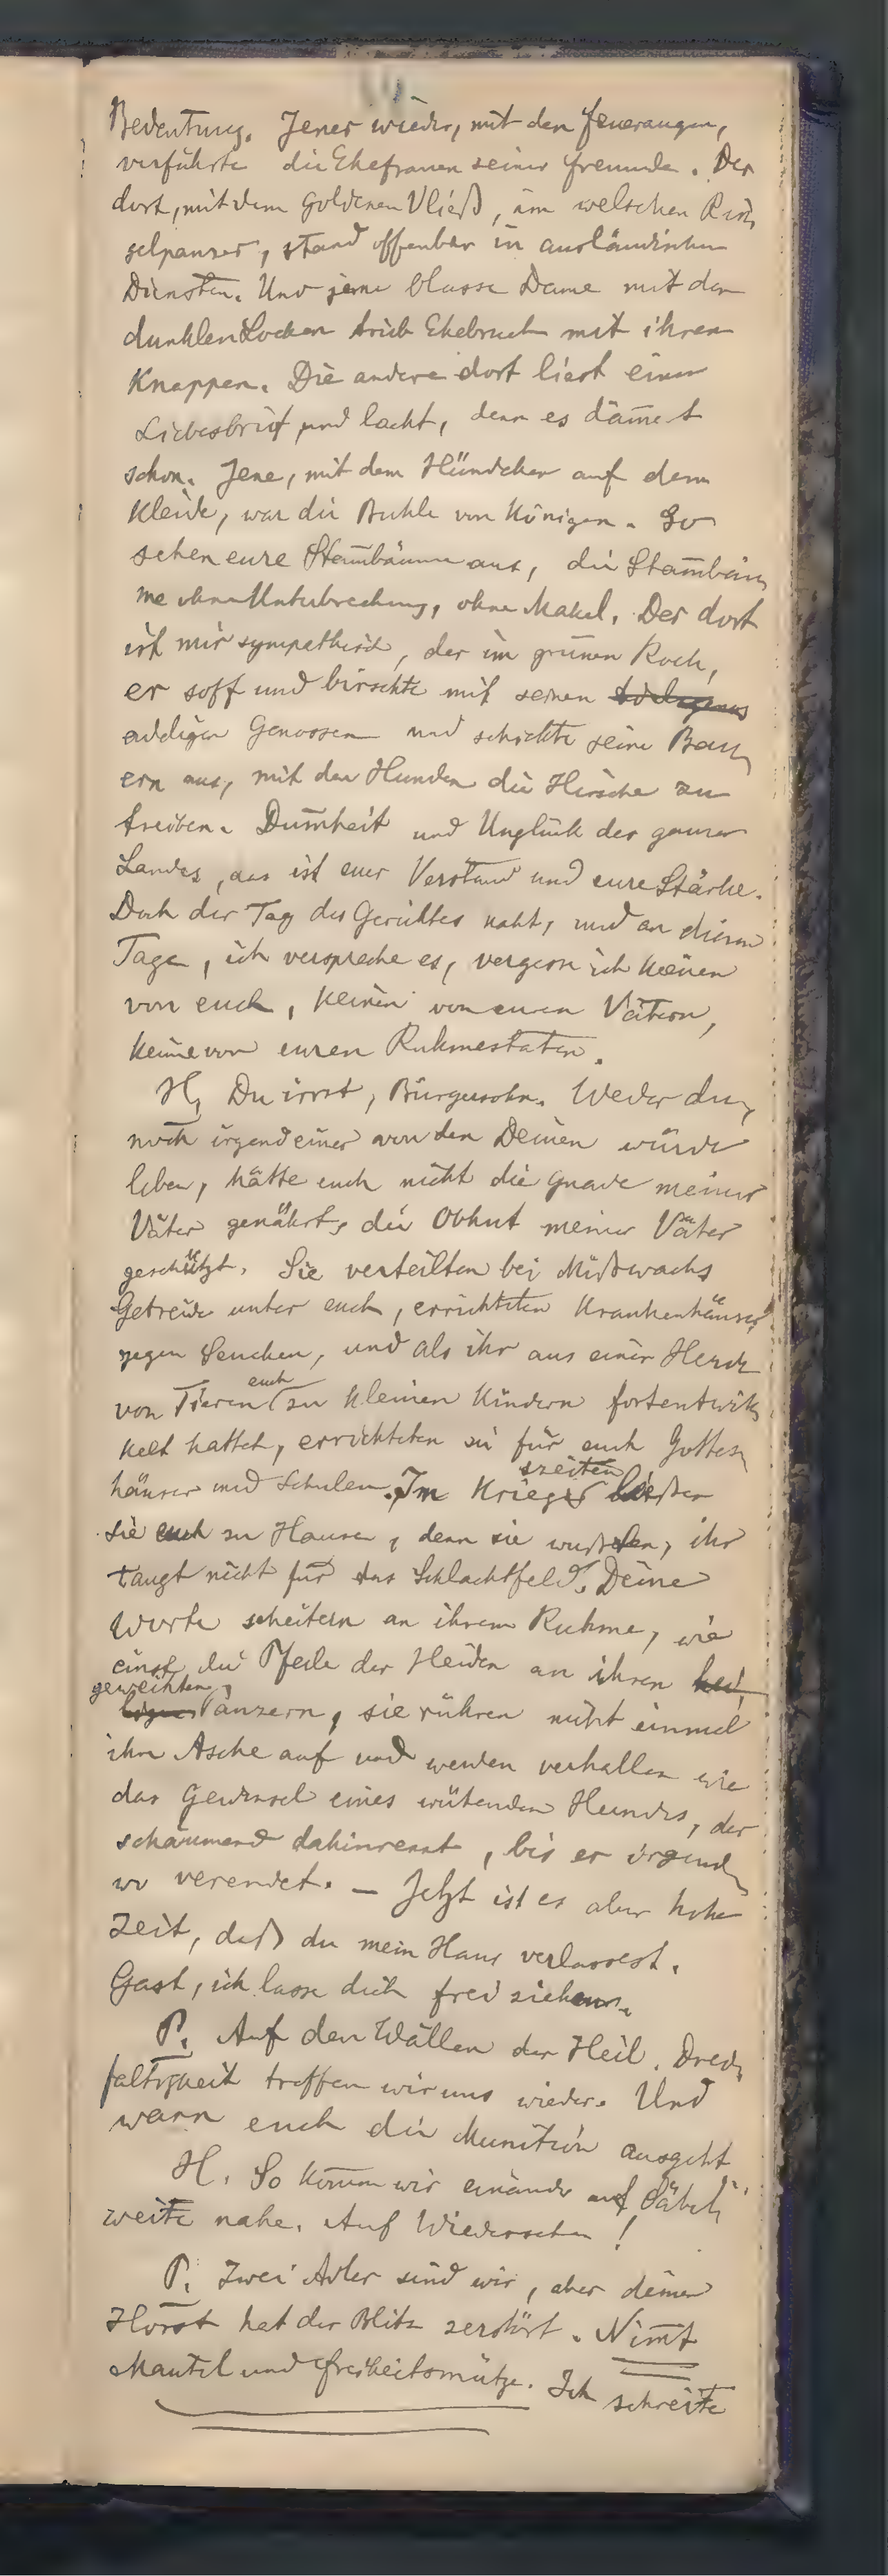 Bedeutung. Jener wieder, mit den Feueraugen,
verführte die Ehefrauen seiner Freunde. Der
dort, mit dem Goldenen Vließ, im welschen Rin-
gelpanzer, stand offenbar in ausländischen
Diensten. Und jene blasse Dame mit den
dunklen Locken trieb Ehebruch mit ihren
Knappen. Die andere dort liest einen
Liebesbrief und lacht, denn es dämert
schon. Jene, mit dem Hündchen auf dem
Kleide, war die Buhle von Königen. So
sehen eure Stambäume aus, die Stambäu-
me ohne Unterbrechung, ohne Makel. Der dort
ist mir sympathisch, der im grünen Rock,
er soff und birschte mit seinen
adeligen Genossen und schickte seine Bau-
ern aus, mit den Hunden die Hirsche zu
treiben. Dumheit und Unglück des ganzen
Landes, das ist euer Verstand und eure Stärke.
Doch der Tag des Gerichtes naht, und an diesem
Tage, ich verspreche es, vergess ich keinen
von euch, keinen von euren Vätern,
keine von euren Ruhmestaten.
H. Du irrst, Bürgersohn. Weder du,
noch irgendeiner von den Deinen würde
leben, hätte euch nicht die Gnade meiner
Väter genährt, die Obhut meiner Väter
geschützt. Sie verteilten bei Mißwachs
Getreide unter euch, errichteten Krankenhäuser
gegen Seuchen, und als ihr aus einer Herde
von Tieren euch zu kleinen Kindern fortentwik-
kelt hattet, errichteten sie für euch Gottes-
häuser und Schulen. In Kriegszeiten ließen
sie euch zu Hause, denn sie wußten, ihr
taugt nicht für das Schlachtfeld. Deine
Worte scheitern an ihrem Ruhme, wie
einst die Pfeile der Heiden an ihren
geweihten Panzern, sie rühren nicht einmal
ihre Asche auf und werden verhallen wie
das Gewinsel eines wütenden Hundes, der
schäumend dahinrennt, bis er irgend-
wo verendet. – Jetzt ist es aber hohe
Zeit, daß du mein Haus verlassest.
Gast, ich lasse dich frei ziehen.
P. Auf den Wällen der Heil. Drei-
faltigkeit treffen wir uns wieder. Und
wann euch die Munition ausgeht
H. So komen wir einander auf Säbel-
weite nahe. Auf Wiedersehen!
P. Zwei Adler sind wir, aber deinen
Horst hat der Blitz zerstört. Nimt
Mantel und Freiheitsmütze. Ich schreite